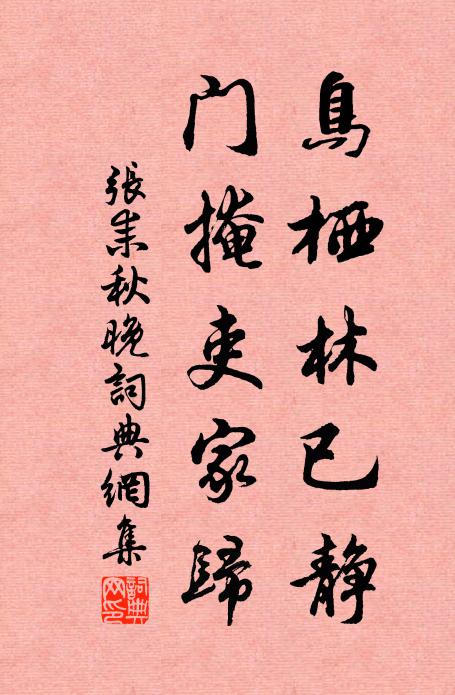 鳥栖林已靜
門掩吏家歸
張耒秋晚詞典網集
詞典網印